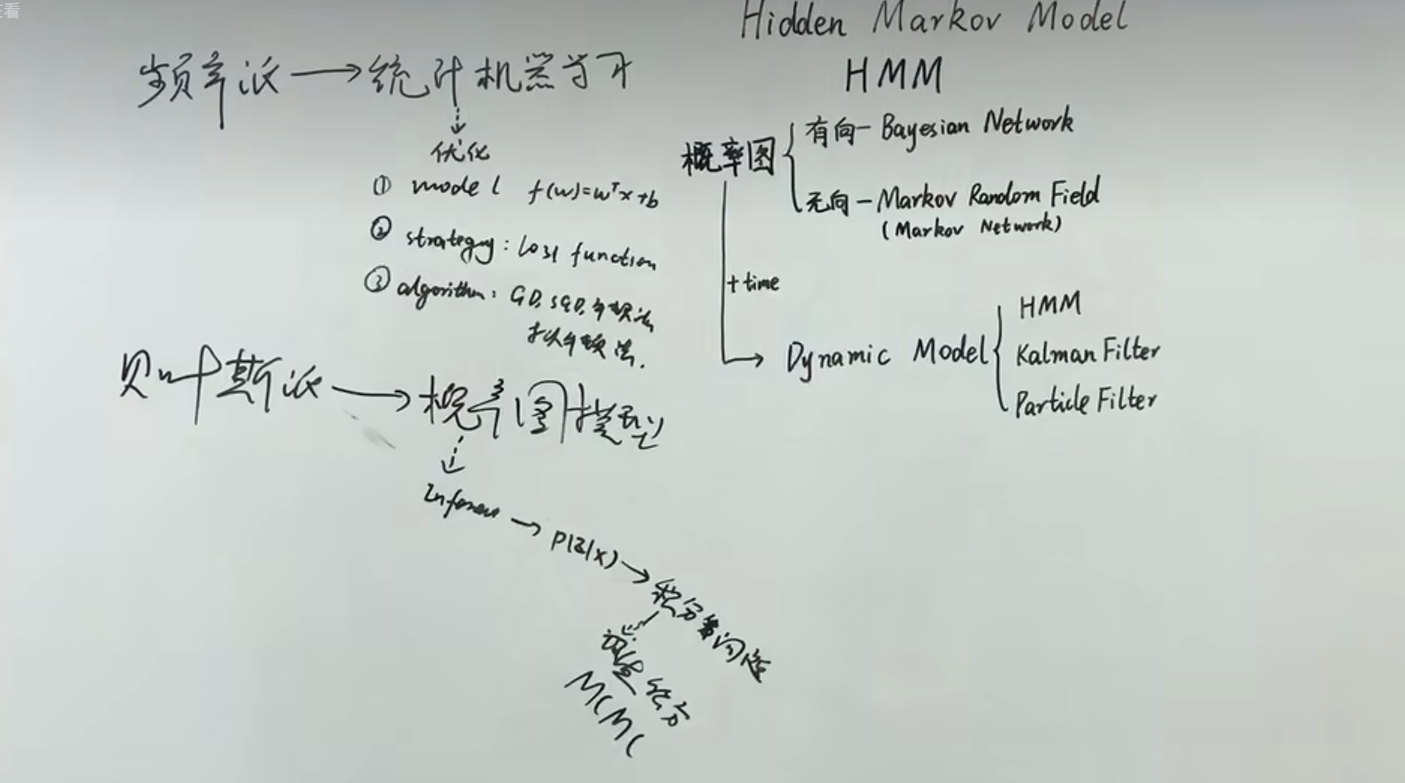 频率派 → 统计机器学习
优化
① model f(w)=wᵀx+b
② strategy: loss function
③ algorithm: GD, SGD, 牛顿法
拟牛顿法.
贝叶斯派 → 概率图模型
Inference → P(z|x) → 积分问题
数值积分
MCMC
Hidden Markov Model
HMM
概率图
有向- Bayesian Network
无向- Markov Random Field
(Markov Network)
+ time
Dynamic Model
HMM
Kalman Filter
Particle Filter